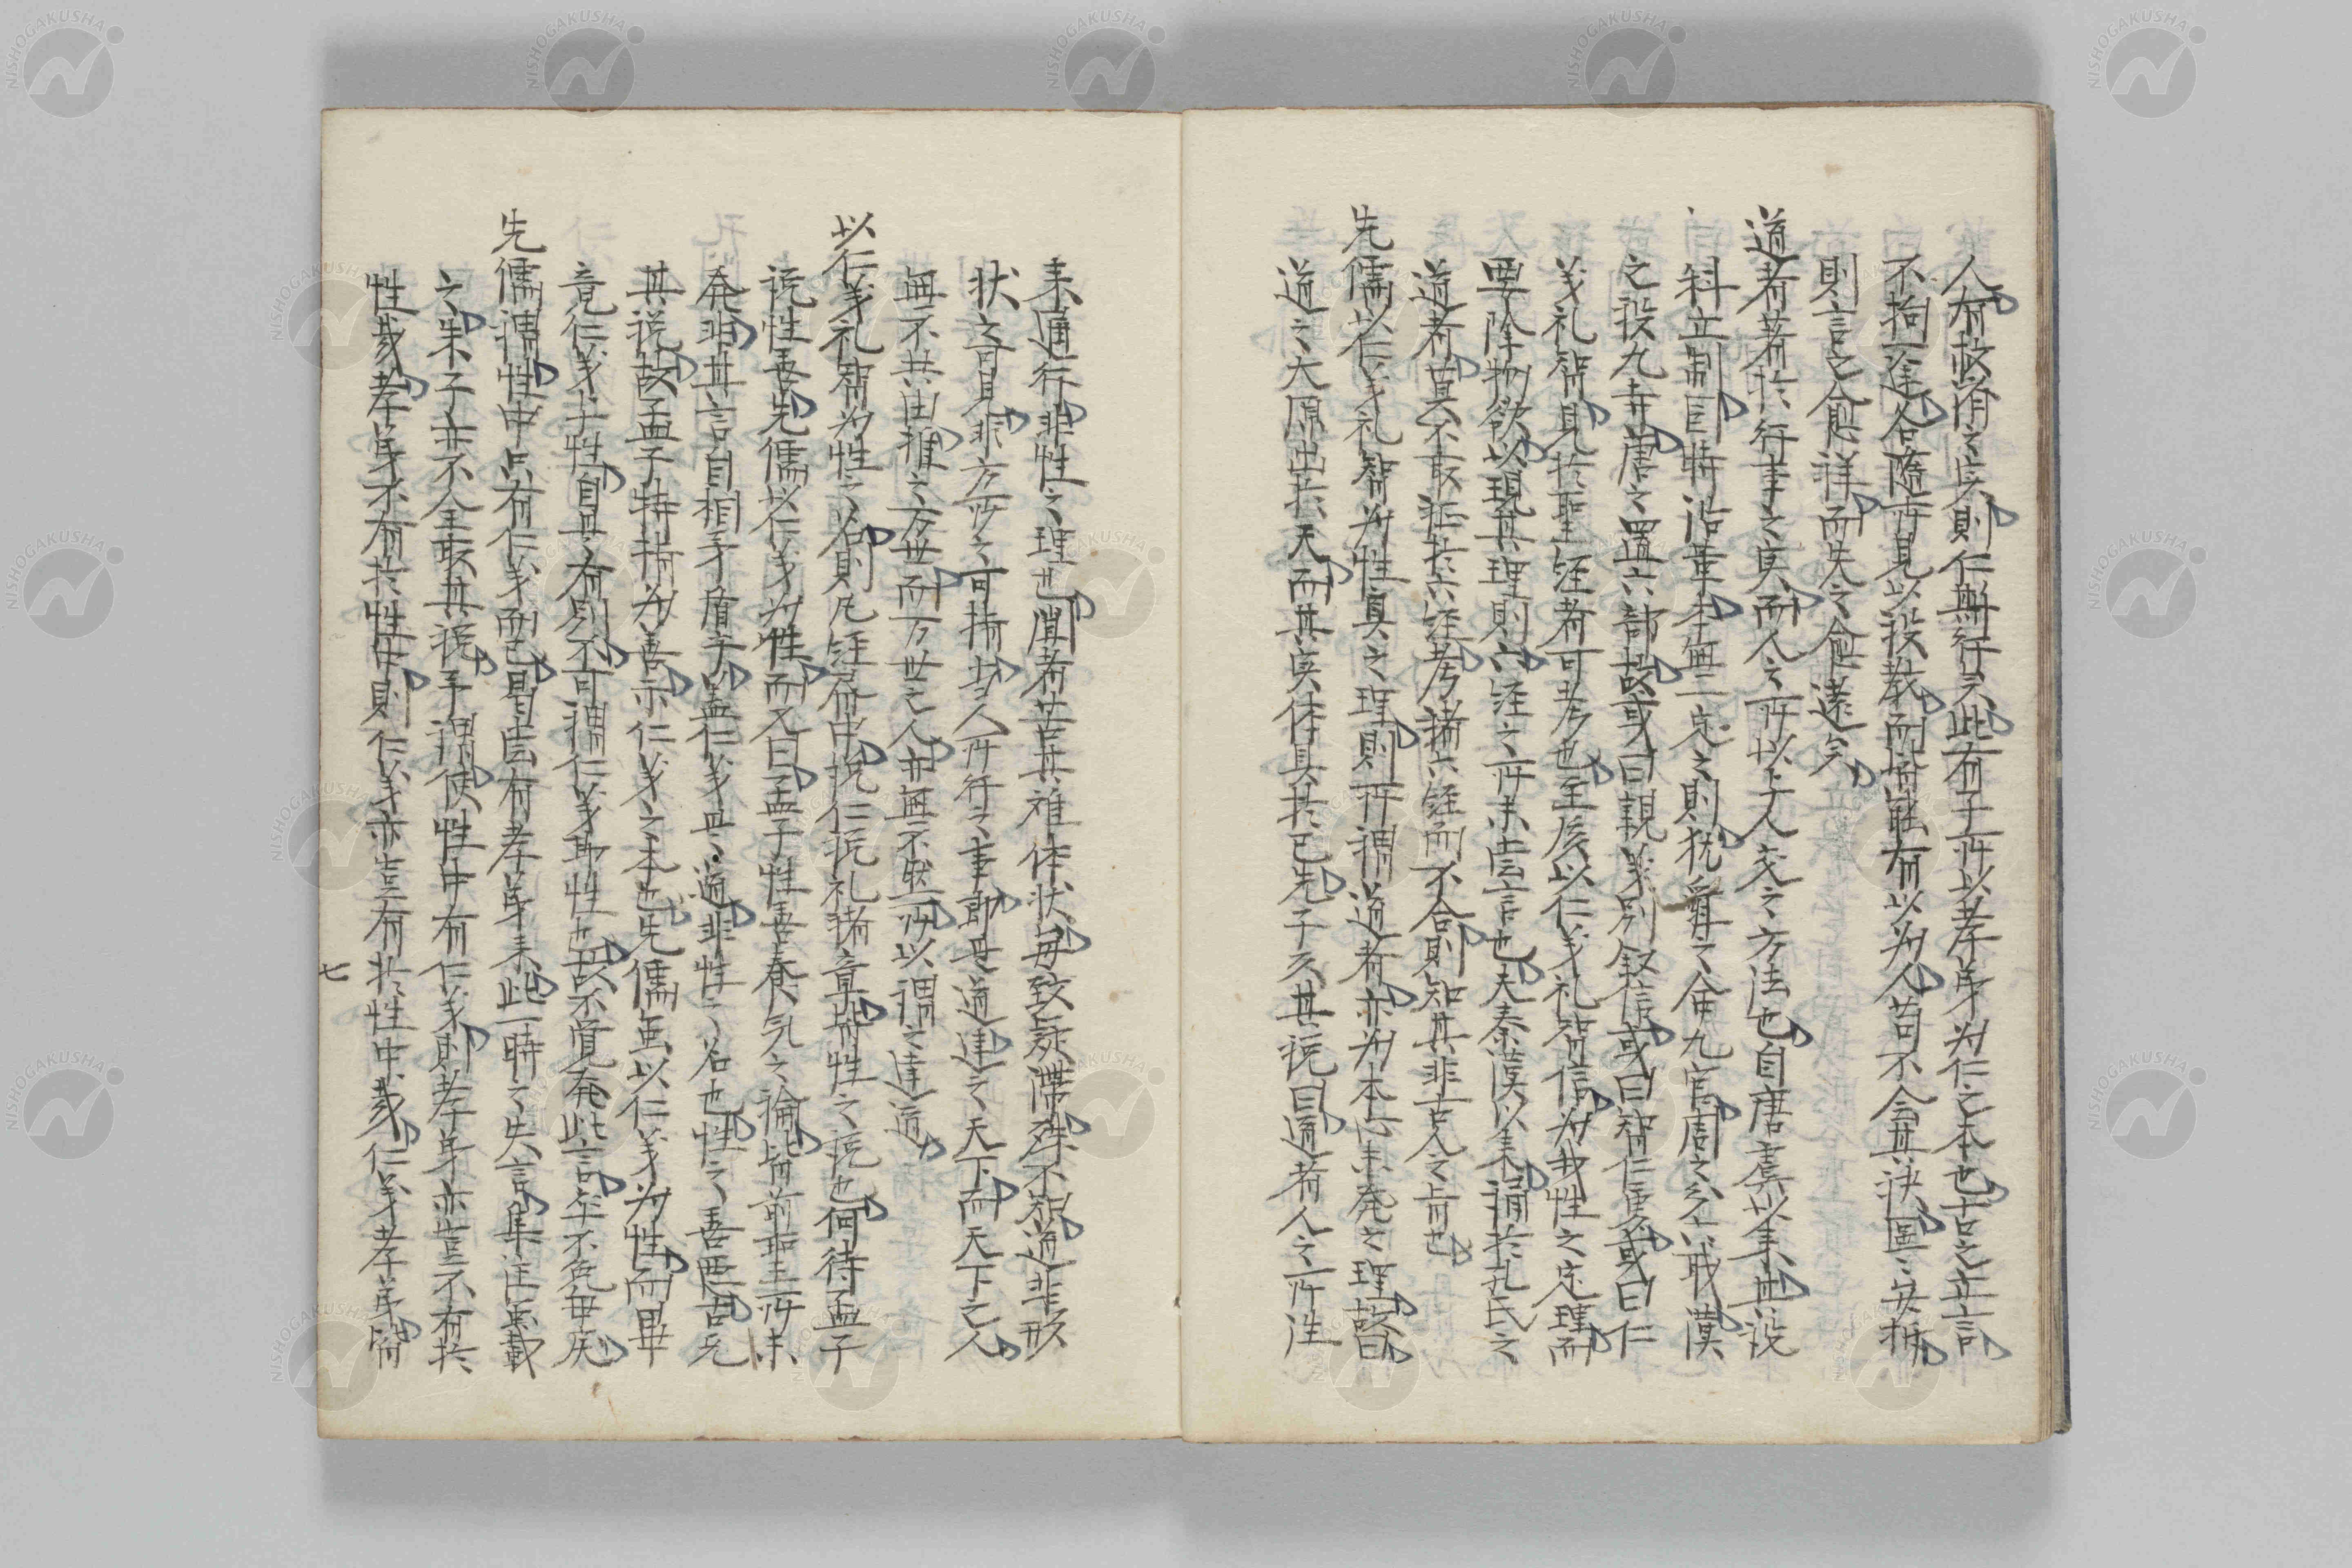 人有孜〻治之実則仁斯行矣此有子所以孝弟為仁之本也古之立言
不拘一途各隨所見以設教而皆能有以為人苟不会其決圖〻安排
則言之愈詳而失之愈遠矣
道者著於行事之実而人之所以与人交之方法也自唐虞以来其設
科立制因時沿革本無一定之則猶舜之命九官周之分六職漢
之设九寺唐之置六部故或曰親義別叙信或曰智仁勇或曰仁
義礼智見於聖経者可考也至後以仁義礼智信為我性之定理而
要除物欲以現其理則六経之所未嘗言也夫秦漢以来誦於孔氏之
道者莫不取証於六経考諸六経而不合則知其非古人之旨也
先儒以仁義礼智為性真之理則所謂道者亦為本心未発之理故曰
道之大原出於天而其実体具於己先子久其説曰道者人之所性
来通行非性之理也聞者苦其難体状毋致疑滞殊不知道非形
状之可見非方所之可擬此人所行之事即是道達之天下而天下之人
無不共由推之万世而万世之人亦無不然所以謂之達道
以仁義礼智為性之名則凡経書中説仁説礼諸章皆性之説也何待孟子
説性善先儒以仁義為性而又曰孟子性善養気之論皆前聖所未
発非其言自相矛盾乎盖仁義是道非性之名也性之善悪古无
其説故孟子特称為善示仁義之本也先儒無以仁義為性而畢
竟仁義与性自是有別不可謂仁義即性也故不覚発此言卒不免毋灰
先儒謂性中只有仁義而已曷嘗有孝弟来此一時之失言集注無載
之朱子亦不全取其説乎謂使性中有仁義則孝弟亦豈不有於
性哉孝弟不有於性中則仁義亦豈有於性中哉仁義孝弟皆
七
NISHOGAKUSHA